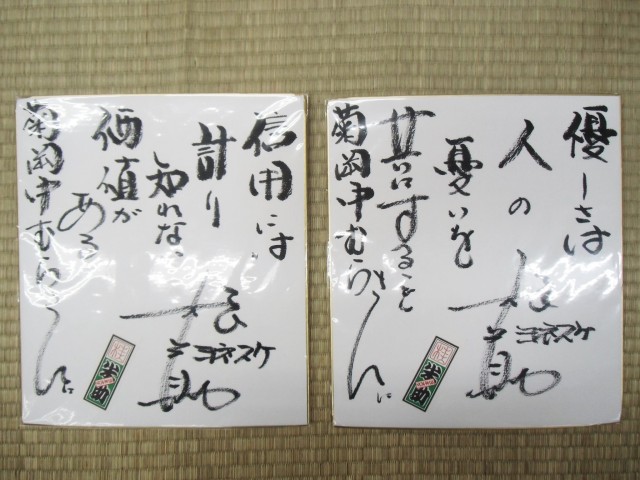 優しさは
人の
憂いを
共にすること
菊岡中むらさんに
桂米助
ヨネスケ
桂
米助
信用には
計り
知れない
価値が
ある
菊岡中むらさんに
桂米助
ヨネスケ
桂
米助